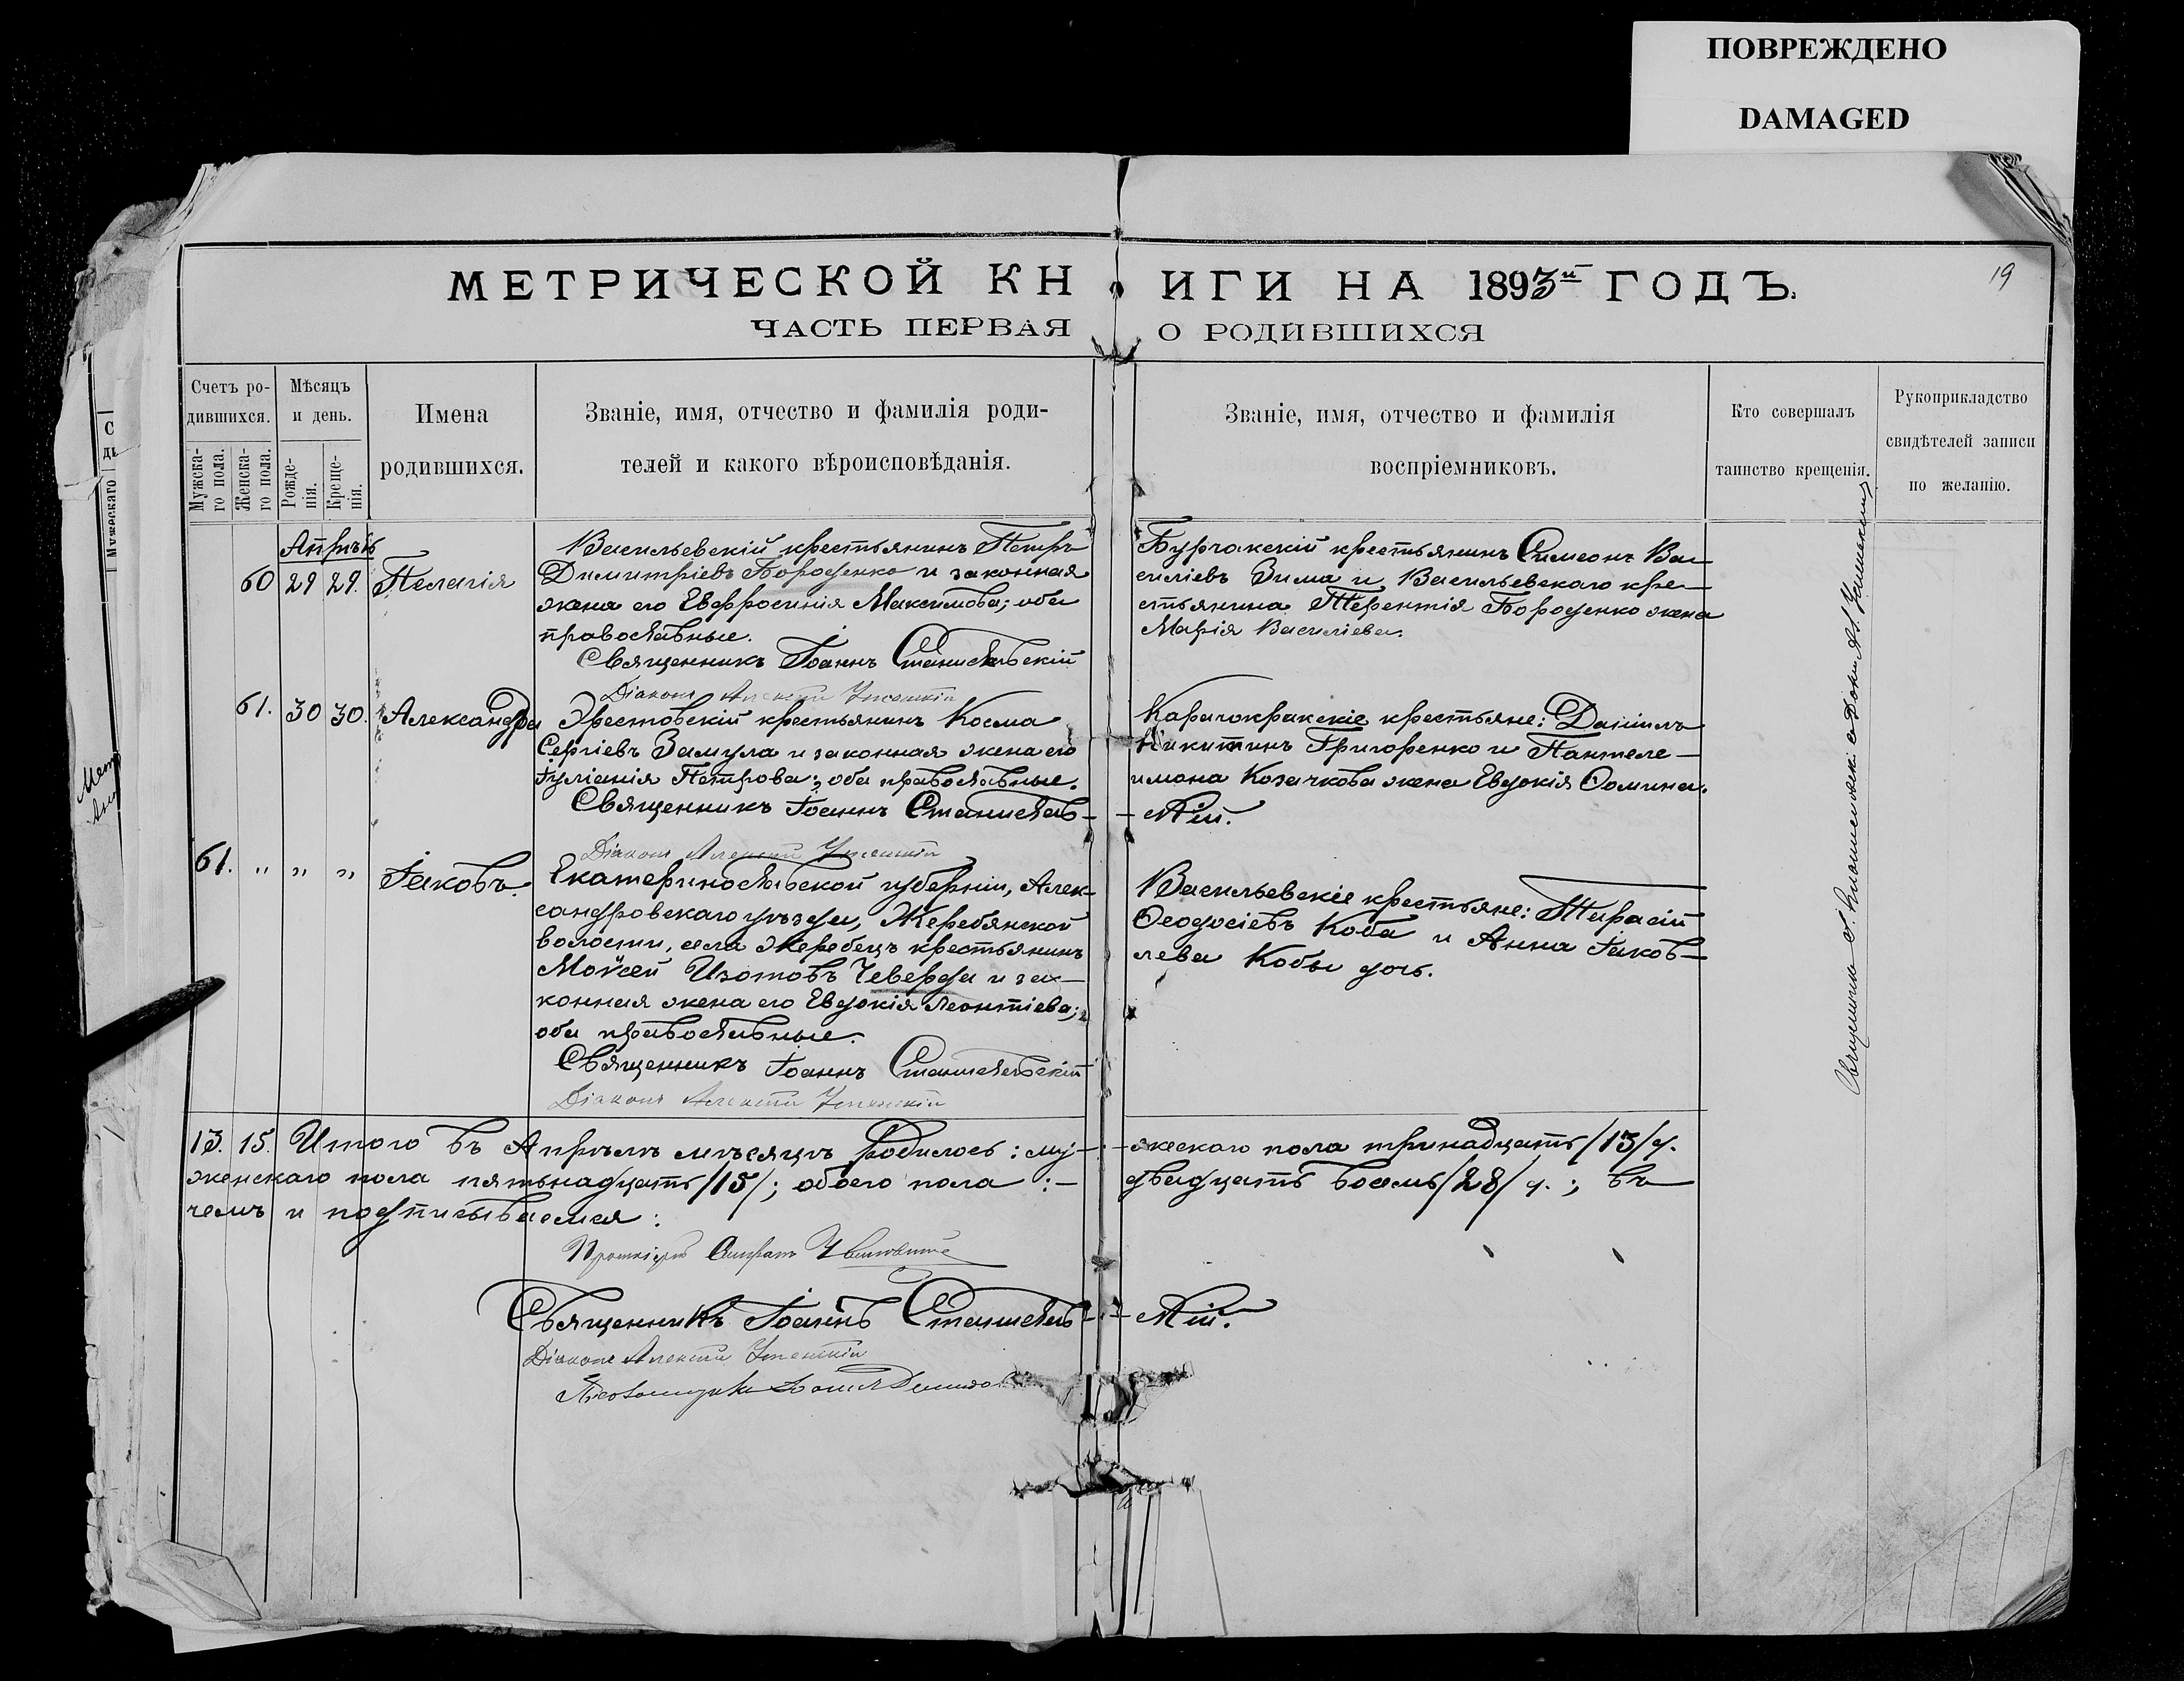 ПОВРЕЖДЕНО
DAMAGED
19
МЕТРИЧЕСКОЙ КНИГИ НА 1893й ГОДЪ.
ЧАСТЬ ПЕРВАЯ О РОДИВШИХСЯ
Счетъ родившихся.
Мужскаго пола.
Женскаго пола.
Мѣсяцъ и день.
Рожденія.
Крещенія.
Имена
родившихся.
Званіе, имя, отчество и фамилія роди-
телей и какого вѣроисповѣданія.
Званіе, имя, отчество и фамилія
воспріемниковъ.
Кто совершалъ
таинство крещенія.
Рукоприкладство
свидѣтелей записи
по желанію.
Апрѣль
60 29 29. Пелагія
Васильевскій крестьянинъ Петръ
Димитріевъ Бороденко и законная
жена его Евфросинія Максимова; оба
православные.
Священникъ Іоаннъ Станиславскій
Діаконъ Алексій Успенскій
Бурчакскій крестьянинъ Симеонъ Ва-
силіевъ Зима и Васильевскаго кре-
стьянина Терентія Бороденко жена
Марія Василіева.
61. 30 30. Александра
Эрестовскій крестьянинъ Косма
Сергіевъ Замула и законная жена его
Іуліанія Петрова; оба православные.
Священникъ Іоаннъ Станислав-
-скій.
Діаконъ Алексій Успенскій
Карачокракскіе крестьяне: Даніилъ
Никитинъ Григоренко и Пантеле-
имона Козачкова жена Евдокія Ѳомина.
61. " " " Іаковъ.
Екатеринославской губерніи, Алек-
сандровскаго уѣзда, Жеребянской
волости, села Жеребецъ крестьянинъ
Моѵсей Изотовъ Чеверда и за-
конная жена его Евдокія Леонтіева;
оба православные.
Священникъ Іоаннъ Станиславскій
Діаконъ Алексій Успенскій
Васильевскіе крестьяне: Тарасій
Ѳеодосіевъ Коба и Анна Іаков-
лева Кобы дочь.
Священникъ діаконъ Ал. Успенскимъ
13. 15. Итого въ Апрѣлѣ мѣсяцѣ родилось: му- -жескаго пола тринадцать /13/ ч.
женскаго пола пятнадцать /15/; обоего пола :- двадцать восемь /28/ ч.; въ
чемъ и подписываемся:
Протоіерей
Священникъ Іоаннъ Станислав- -скій.
Діаконъ Алексій Успенскій
Псаломщикъ